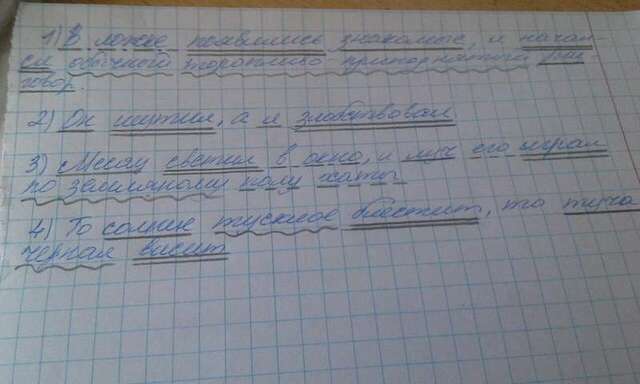 1) В ложе появились знакомые, и начал-
ся обычный торопливо приподнятый раз-
говор.
2) Он шутил, а я злобствовал
3) Месяц светил в окно, и луч его играл
по земляному полу хаты
4) То солнце тусклое блестит, то туча
черная висит